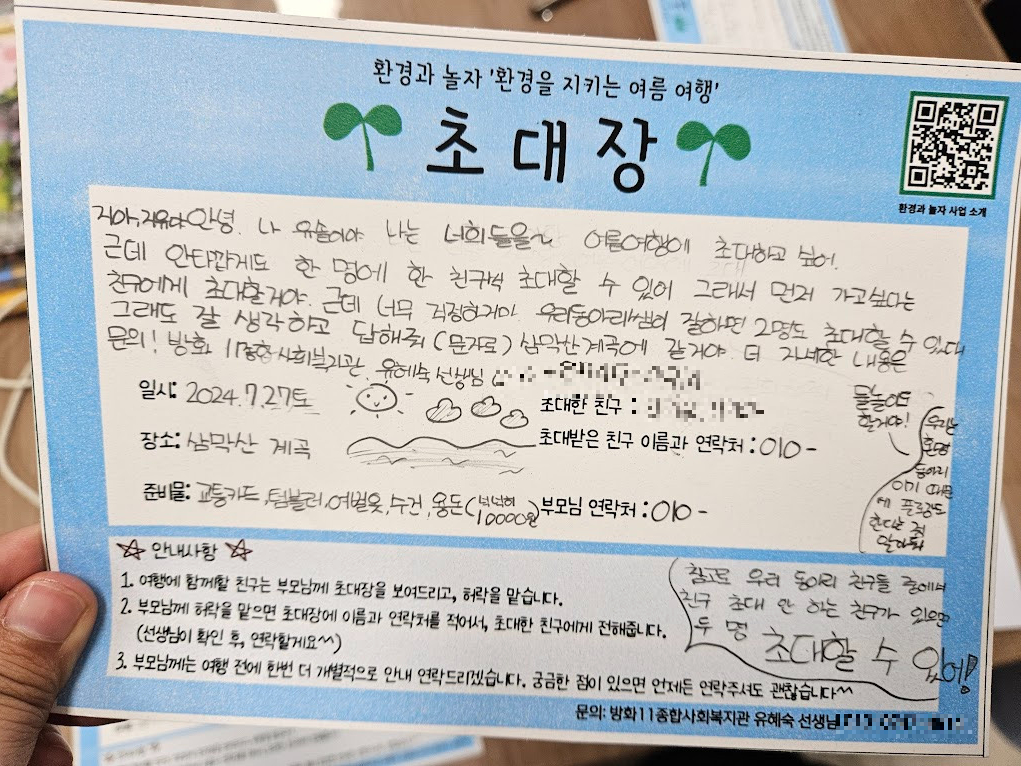 환경과 놀자 '환경을 지키는 여름 여행'
초대장
환경과 놀자 사업 소개
지아,지유야 안녕. 나 유솔이야 나는 너희들을~ 여름여행에 초대하고 싶어.
근데 안타깝게도 한 명에 한 친구씩 초대할 수 있어 그래서 먼저 가고싶다는
친구에게 초대할거야. 근데 너무 걱정하지마 우리동아리쌤이 잘하면 2명도 초대할 수 있대
그래도 잘 생각하고 답해줘 (문자로) 삼막산계곡에 갈거야. 더 자세한 내용은
문의! 방화 11종합사회복지관, 유혜숙 선생님
일시: 2024.7.27토
초대한 친구 :
장소: 삼막산 계곡
초대받은 친구 이름과 연락처 : 010-
준비물: 교통카드, 텀블러, 여벌옷, 수건, 용돈(넉넉히 10000원)
부모님 연락처 : 010-
물놀이도
할거야!
우리는
환경
동아리
이기 때문
에 플로깅도
한다는 점
알아둬
☆ 안내사항 ☆
1. 여행에 함께할 친구는 부모님께 초대장을 보여드리고, 허락을 맡습니다.
2. 부모님께 허락을 맡으면 초대장에 이름과 연락처를 적어서, 초대한 친구에게 전해줍니다.
(선생님이 확인 후, 연락할게요~~)
3. 부모님께는 여행 전에 한번 더 개별적으로 안내 연락드리겠습니다. 궁금한 점이 있으면 언제든 연락주셔도 괜찮습니다~
참고로 우리 동아리 친구들 중에서
친구 초대 안 하는 친구가 있으면
두 명 초대할 수 있어!
문의: 방화11종합사회복지관 유혜숙 선생님